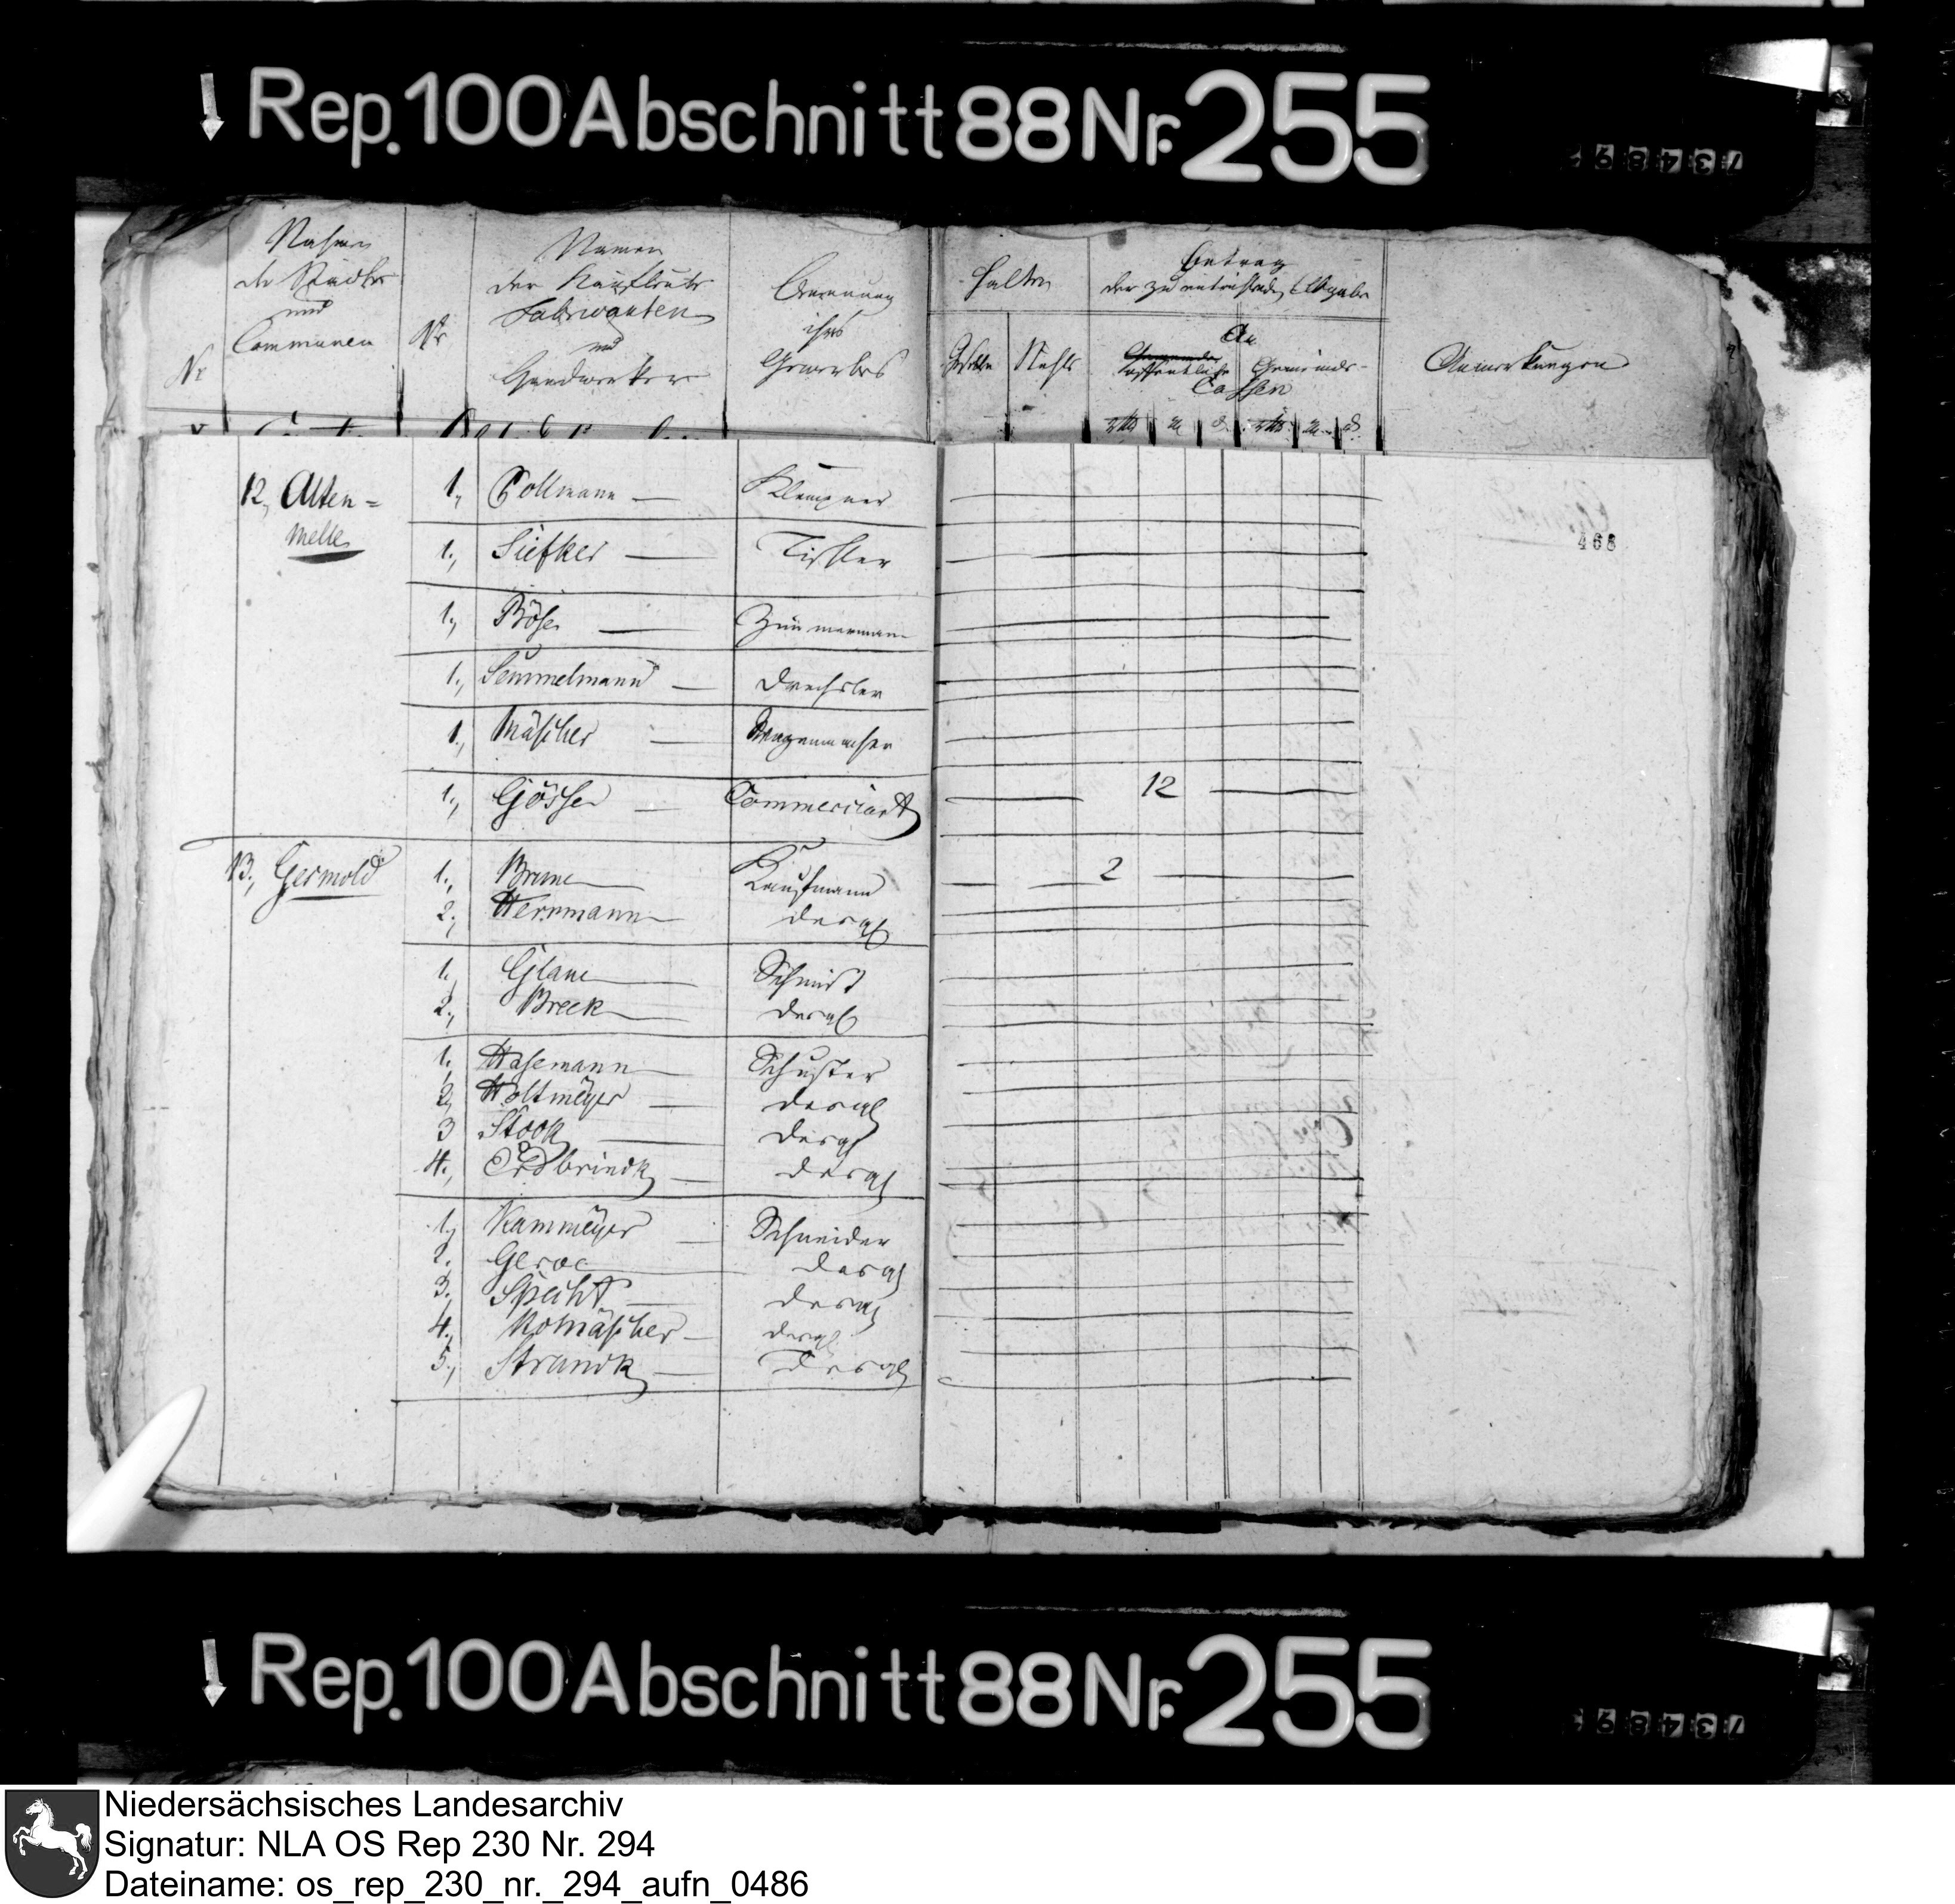 Rep. 100 Abschnitt 88 Nr. 255
734897
Nr
Nahmen
der Städte
und
Communen
Nr
Namen
der Kaufleute
Fabrikanten
und
Handwerker
Benennung
ihres
Gewerbes
Halten
Gesellen
Betrag
der zu entrichtenden Abgabe
An
öffentliche
Gemeinde-
Cassen
Anmerkungen
468
12, Alten=
melle
1., Pollmann — Klempner
1., Siefker — Tischler
1., Böse — Zimmermann
1., Semmelmann — Drechsler
1., Mäscher — Wagenmacher
1., Gösse — Commerciant — 12 —
13, Gesmold
1., Breme — Kaufmann — 2 —
2., Hernmann — desgl
1. Glane — Schmidt
2., Breek — desgl
1., Hasemann — Schuster
2, Holtmeyer — desgl
3 Stock — desgl
4., Erdbrinck — desgl
1, Kammeyer — Schneider
2. — desgl
3., Specht — desgl
4., Romäscher — desgl
5., Strunck — desgl
Rep. 100 Abschnitt 88 Nr. 255
734897
Niedersächsisches Landesarchiv
Signatur: NLA OS Rep 230 Nr. 294
Dateiname: os_rep_230_nr._294_aufn_0486